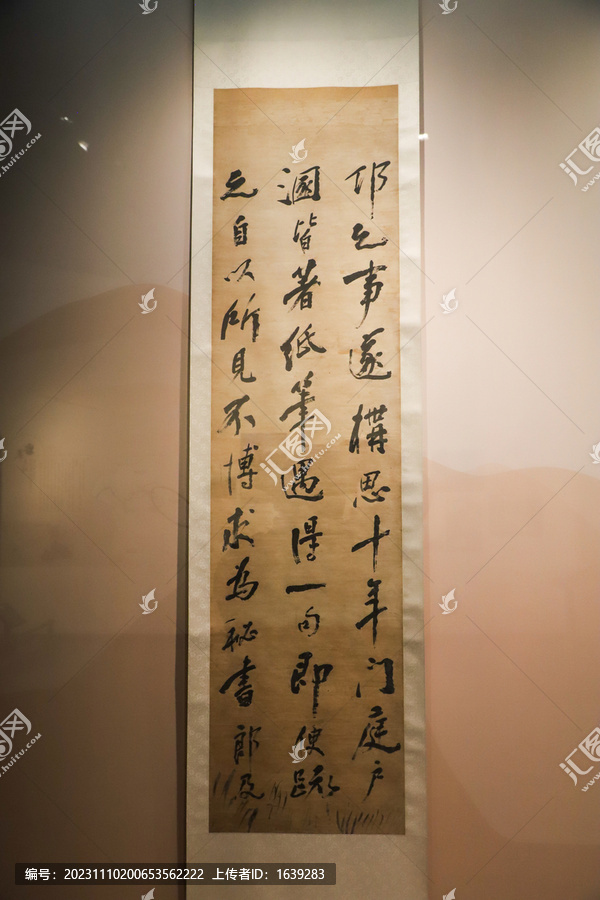 邛之事遂構思十年门庭户
溷皆著紙筆遇得一句即便疏
之自以所見不博求為祕書郎及
汇图
www.huitu.com
编号：20231110200653562222 上传者ID：1639283